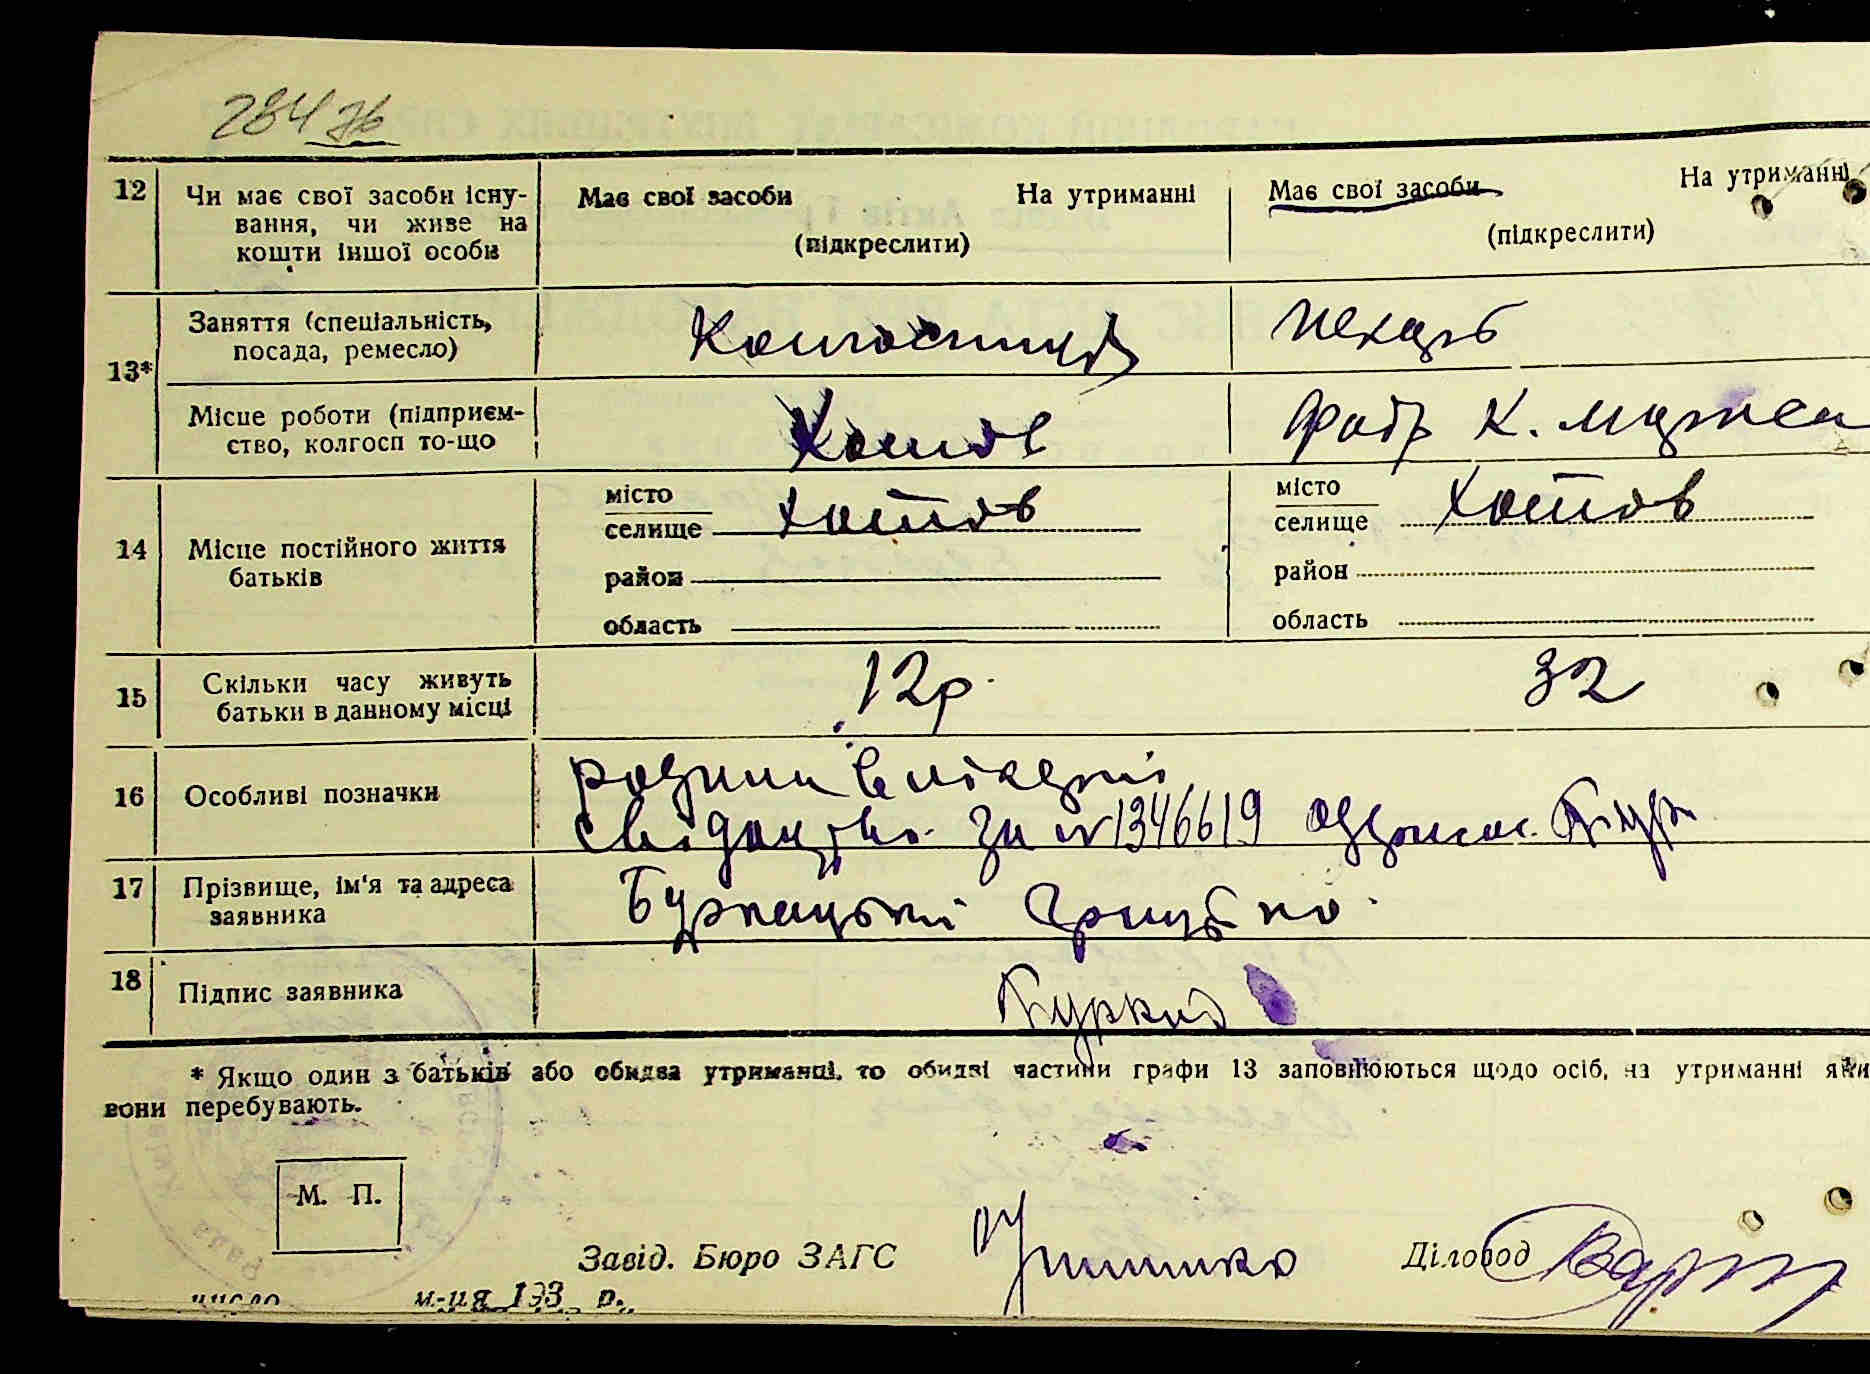 284 зв
12 Чи має свої засоби існу- Має свої засоби На утриманні Має свої засоби На утриманні
вання, чи живе на (підкреслити) (підкреслити)
кошти іншої особи
13* Заняття (спеціальність, Пекарь
посада, ремесло)
Місце роботи (підприєм- Хотів К.
ство, колгосп то-що
14 Місце постійного життя місто Хотів місто Хотів
батьків селище селище
район район
область область
15 Скільки часу живуть 12 р. 32
батьки в данному місці
16 Особливі позначки родини в лікарні
свідоцтво за № 1346619 одержал
17 Прізвище, ім'я та адреса
заявника
18 Підпис заявника
* Якщо один з батьків або обидва утриманці, то обидві частини графи 13 заповнюються щодо осіб, на утриманні яки
вони перебувають.
М. П.
Завід. Бюро ЗАГС Діловод
число м-ця 193 р.